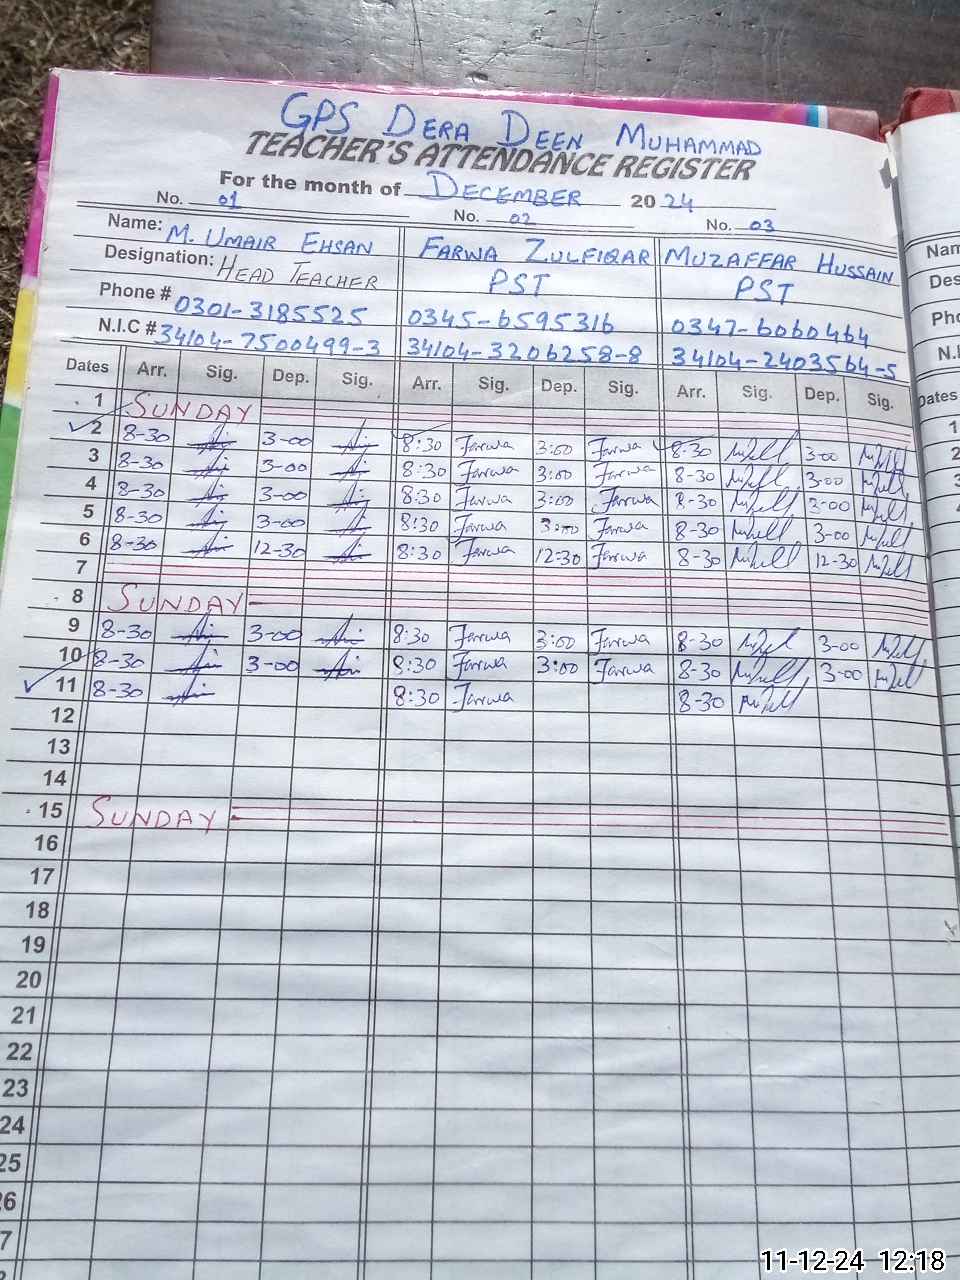 GPS DERA DEEN MUHAMMAD
TEACHER'S ATTENDANCE REGISTER
For the month of DECEMBER 2024
No. 01 No. 02 No. 03
Name: M. UMAIR EHSAN FARWA ZULFIQAR MUZAFFAR HUSSAIN Nam
Designation: HEAD TEACHER PST PST Des
Phone # 0301-3185525 0345-6595316 0347-6060464 Pho
N.I.C # 34104-7500499-3 34104-3206258-8 34104-2403564-5 N.I
Dates Arr. Sig. Dep. Sig. Arr. Sig. Dep. Sig. Arr. Sig. Dep. Sig. Dates
1 SUNDAY
2 8-30 3-00 8:30 Farwa 3:00 Farwa 8-30 3-00
3 8-30 3-00 8:30 Farwa 3:00 Farwa 8-30 3-00
4 8-30 3-00 8:30 Farwa 3:00 Farwa 8-30 3-00
5 8-30 3-00 8:30 Farwa 3:00 Farwa 8-30 3-00
6 8-30 12-30 8:30 Farwa 12-30 Farwa 8-30 12-30
7
8 SUNDAY
9 8-30 3-00 8:30 Farwa 3:00 Farwa 8-30 3-00
10 8-30 3-00 8:30 Farwa 3:00 Farwa 8-30 3-00
11 8-30 8:30 Farwa 8-30
12
13
14
15 SUNDAY
16
17
18
19
20
21
22
23
24
25
26
7
11-12-24 12:18